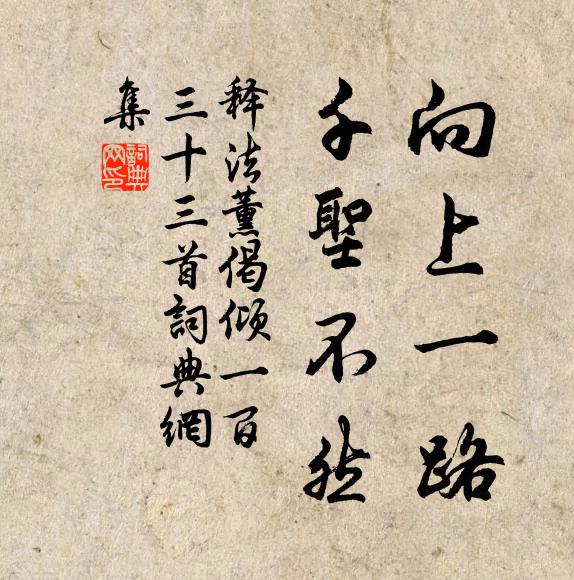 向上一路
千聖不然
释法薰偈倾一百
三十三首詞典網
集
詞典
网印